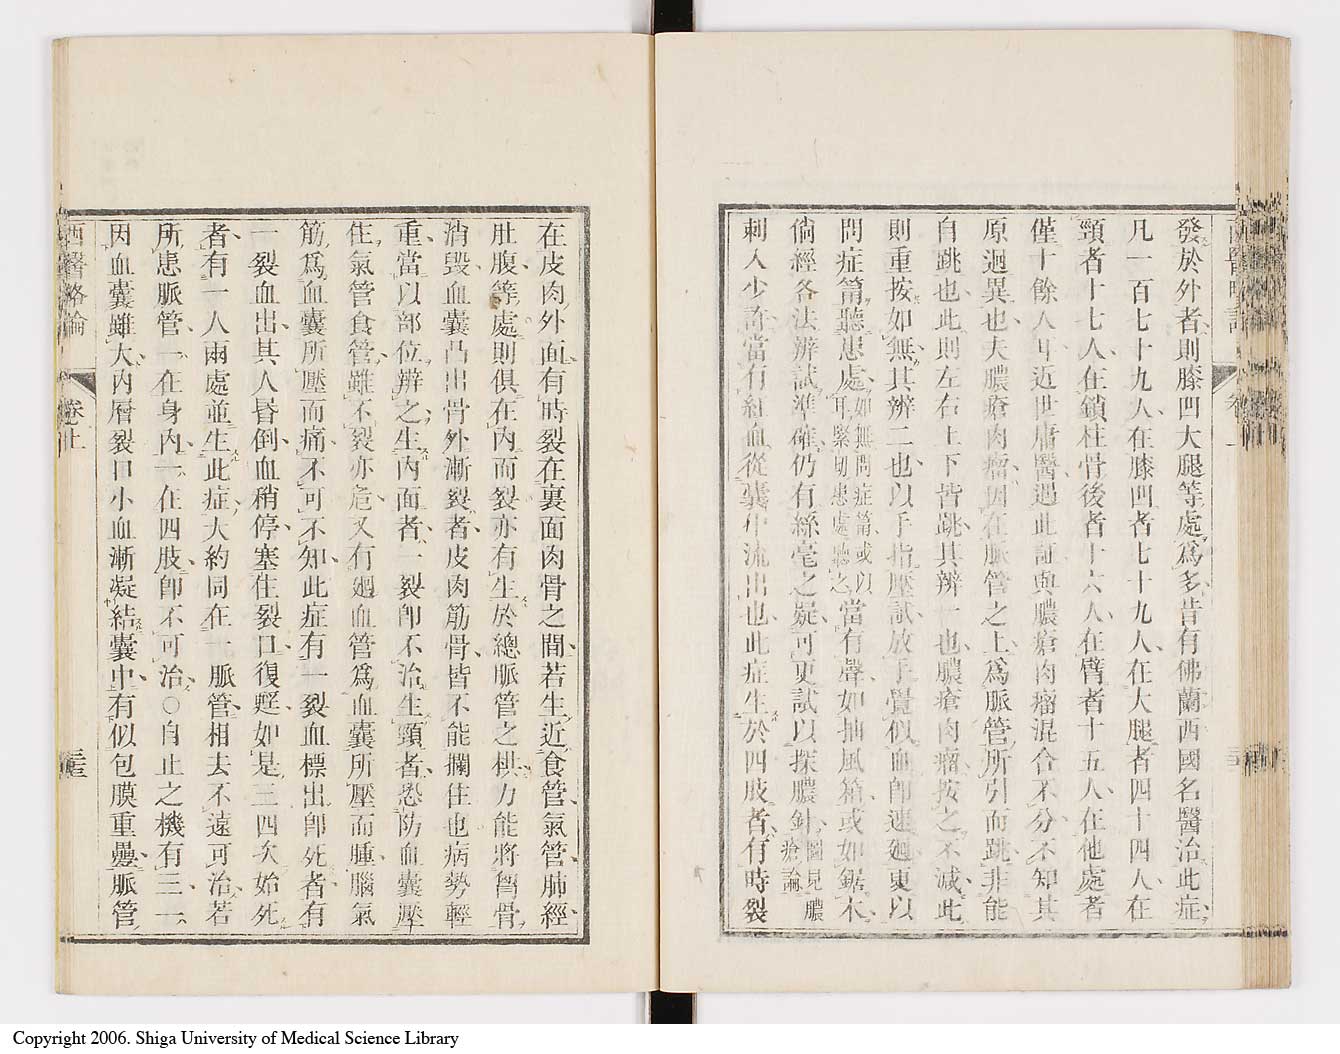 發於外者則膝凹大腿等處爲多昔有佛蘭西國名醫治此症
凡一百七十九人在膝凹者七十九人在大腿者四十四人在
頸者十七人在鎖柱骨後者十六人在臂者十五人在他處者
僅十餘人耳近世庸醫遇此証與膿瘡肉瘤混合不分不知其
原迥異也夫膿瘡肉瘤因在脈管之上爲脈管所引而跳非能
自跳也此則左右上下皆跳其辨一也膿瘡肉瘤按之不減此
則重按如無其辨二也以手指壓試放手覺似血即速廻更以
問症筩聽患處如無問症筩或以耳緊切患處聽之當有聲如抽風箱或如鋸木
倘經各法辨試準確仍有絲毫之疑可更試以探膿針圖見膿瘡論
刺入少許當有紅血從囊中流出也此症生於四肢者有時裂
在皮肉外面有時裂在裏面肉骨之間若生近食管氣管肺經
肚腹等處則俱在內而裂亦有生於總脈管之栱力能將胷骨
消毀血囊凸出骨外漸裂者皮肉筋骨皆不能攔住也病勢輕
重當以部位辨之生內面者一裂即不治生頸者恐防血囊壓
住氣管食管雖不裂亦危又有廻血管爲血囊所壓而腫腦氣
筋爲血囊所壓而痛不可不知此症有一裂血標出即死者有
一裂血出其人昏倒血稍停塞住裂口復甦如是三四次始死
者有一人兩處並生此症大約同在一脈管相去不遠可治若
所患脈管一在身內一在四肢即不可治○自止之機有三一
因血囊雖大內層裂口小血漸凝結囊中有似包膜重疊脈管
西醫略論
卷上
三